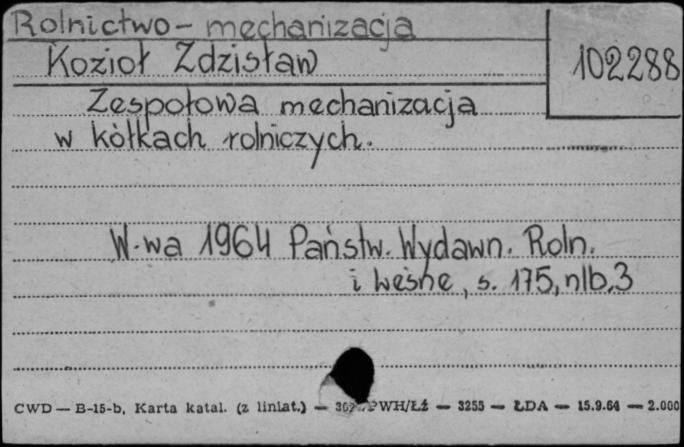 Rolnictwo - mechanizacja
Kozioł Zdzisław
102288
Zespołowa mechanizacja
w kółkach rolniczych.
W-wa 1964 Państw. Wydawn. Roln.
i Leśne, s. 175, nlb. 3
CWD — B-15-b, Karta katal. (z liniat.) — PWH/Łź — 3255 — ŁDA — 15.9.64 — 2.000